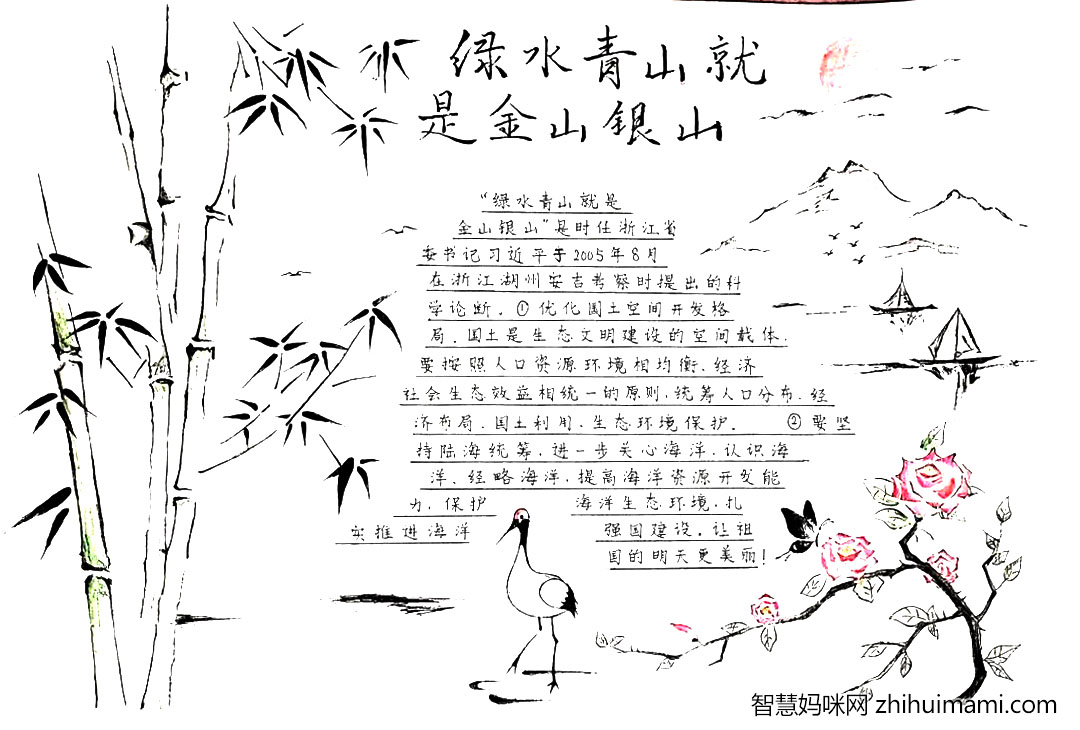 绿水青山就
是金山银山
“绿水青山就是
金山银山”是时任浙江省
委书记习近平于2005年8月
在浙江湖州安吉考察时提出的科
学论断。①优化国土空间开发格
局、国土是生态文明建设的空间载体.
要按照人口资源环境相均衡、经济
社会生态效益相统一的原则,统筹人口分布、经
济布局、国土利用、生态环境保护. ②要坚
持陆海统筹,进一步关心海洋、认识海
洋、经略海洋,提高海洋资源开发能
力、保护 海洋生态环境、扎
实推进海洋 强国建设,让祖
国的明天更美丽!
智慧妈咪网 zhihuimami.com